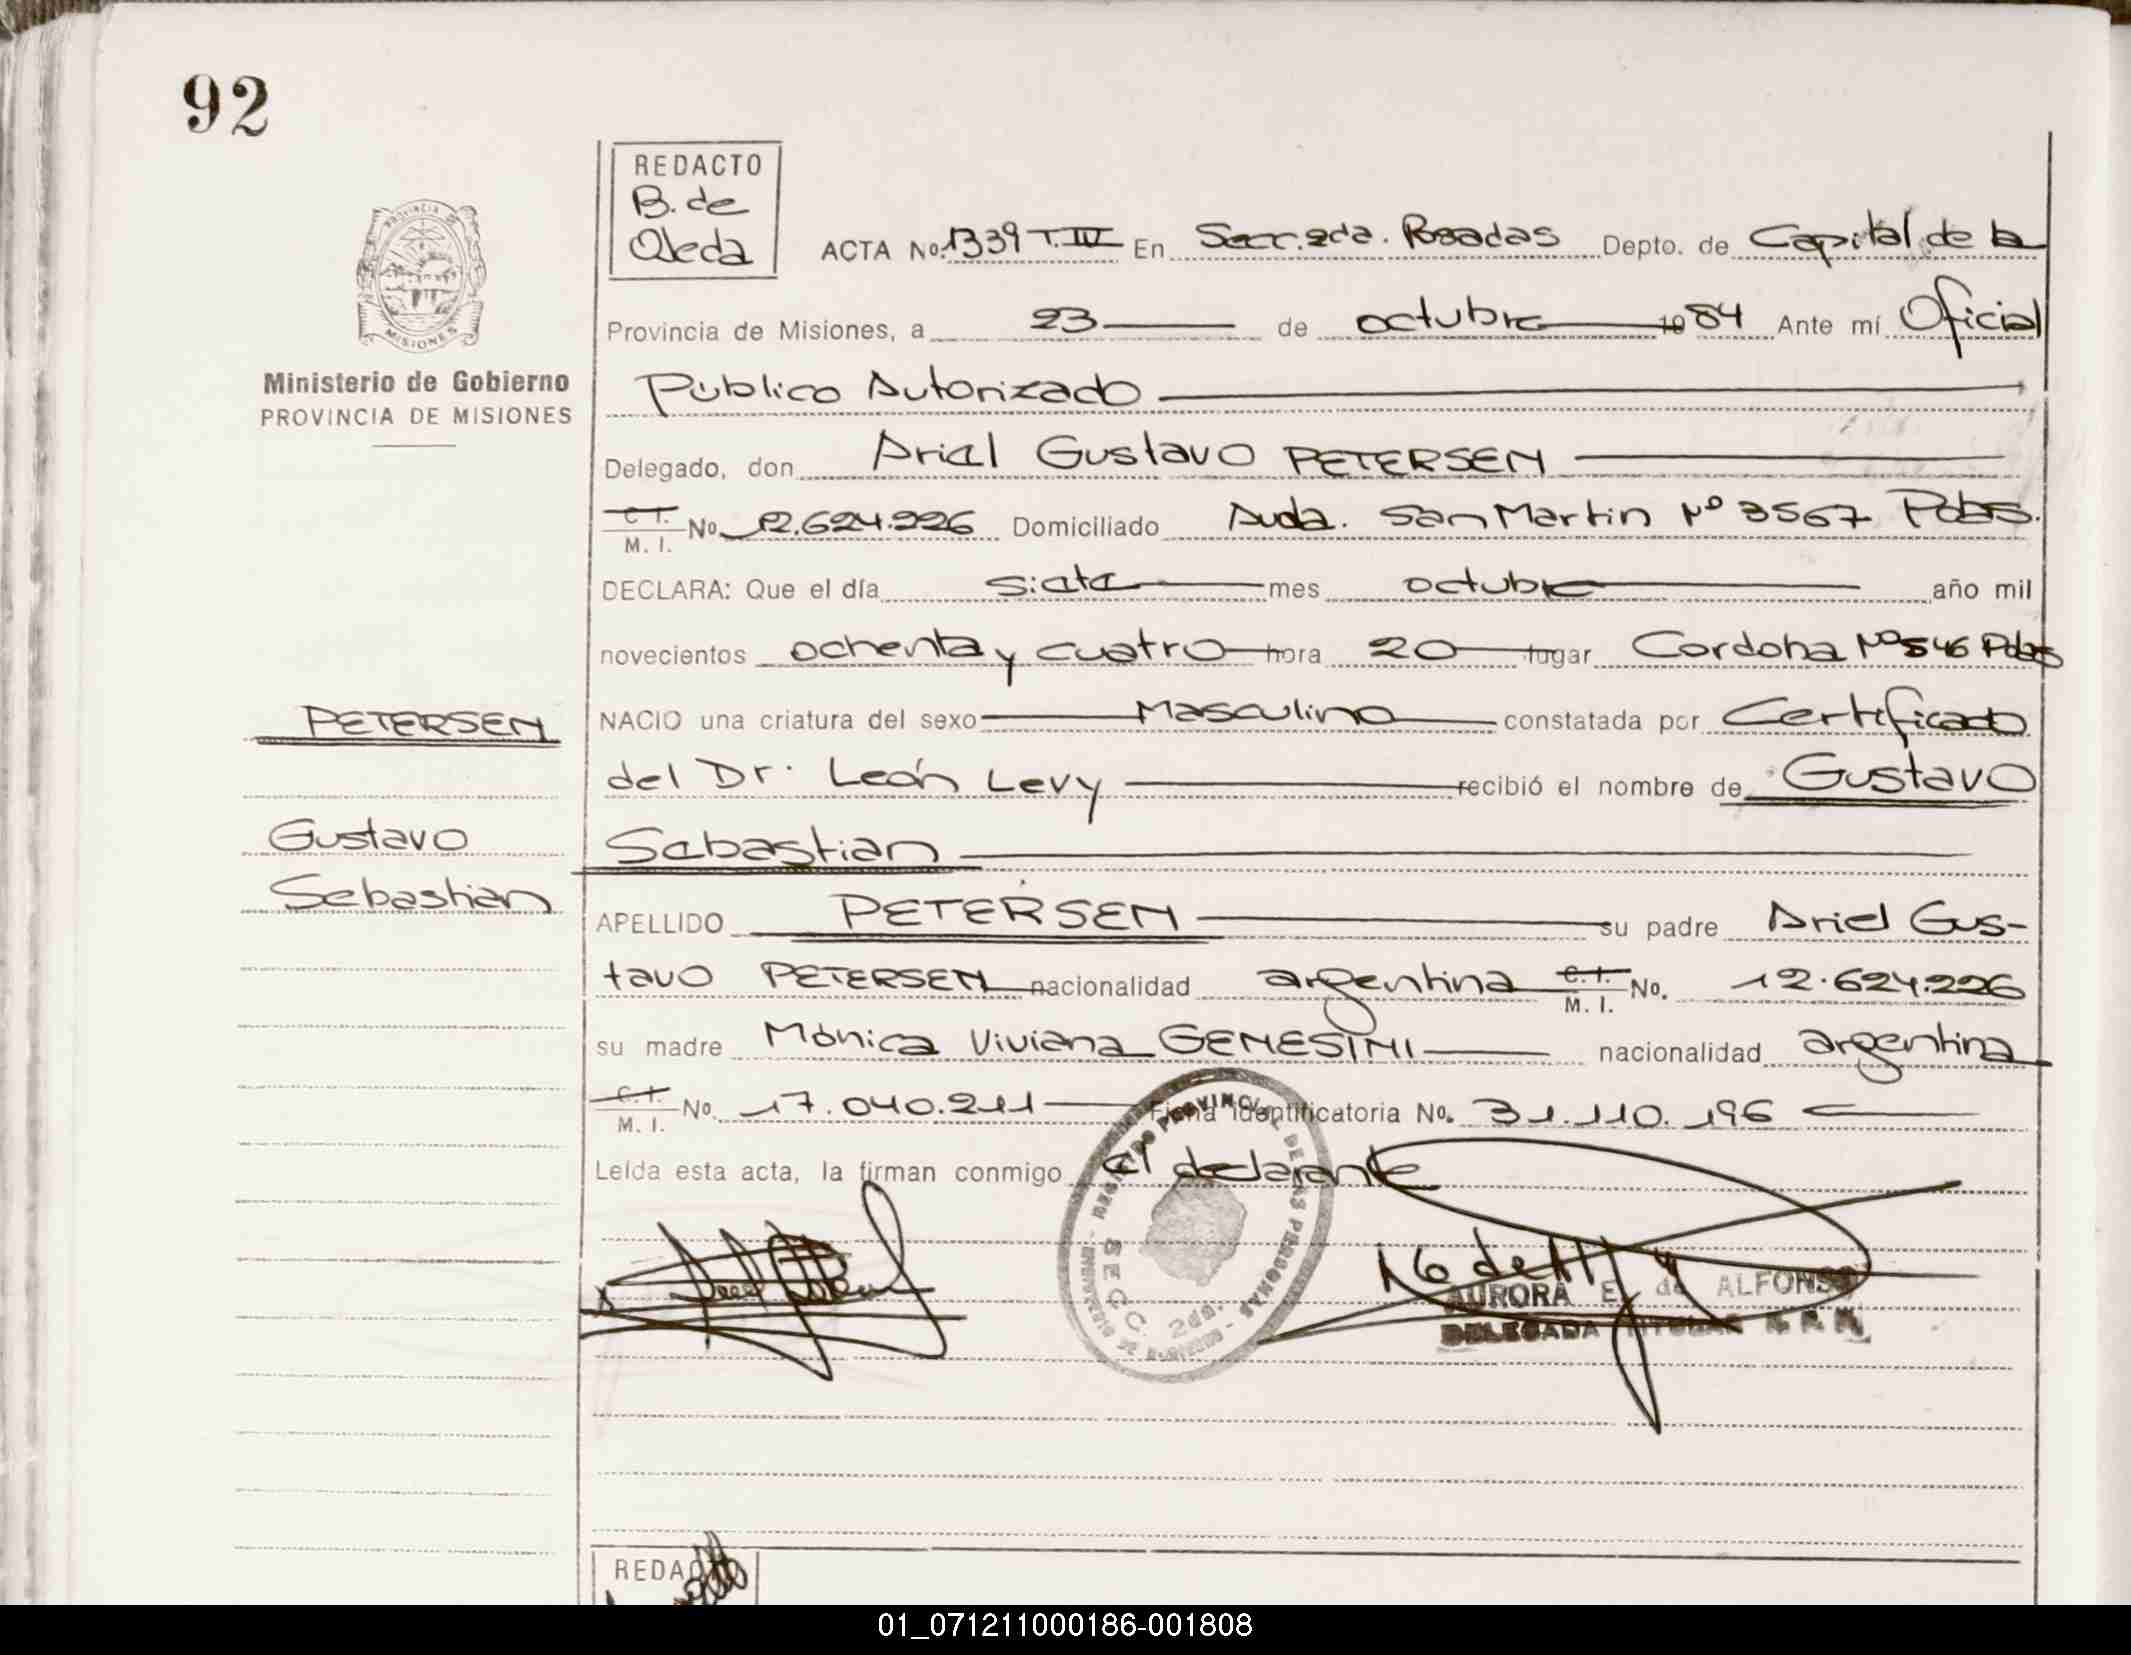 92
REDACTO
B. de
Ojeda
ACTA No. 1339 T. IV En Secc. 2da. Posadas Depto. de Capital de la
Provincia de Misiones, a 23 de octubre 1984 Ante mí Oficial
Público Autorizado
Delegado, don Ariel Gustavo PETERSEN
C. I.
M. I. No 12.624.226 Domiciliado Avda. San Martin Nº 3567 Pdas.
DECLARA: Que el día siete mes octubre año mil
novecientos ochenta y cuatro hora 20 lugar Cordoba Nº 546 Pdas
NACIO una criatura del sexo Masculino constatada por Certificado
del Dr. León Levy recibió el nombre de Gustavo
Sebastian
APELLIDO PETERSEN su padre Ariel Gus-
tavo PETERSEN nacionalidad argentina C. I. No. 12.624.226
M. I.
su madre Mónica Viviana GENESINI nacionalidad argentina
C. I.
M. I. No. 17.040.211 Ficha identificatoria No. 31.110.196
Leída esta acta, la firman conmigo el declarante
PROVINCIA DE
MISIONES
Ministerio de Gobierno
PROVINCIA DE MISIONES
PETERSEN
Gustavo
Sebastian
SECC. 2da.
AURORA E. de ALFONSO
DELEGADA TITULAR
REDACTO
01_071211000186-001808